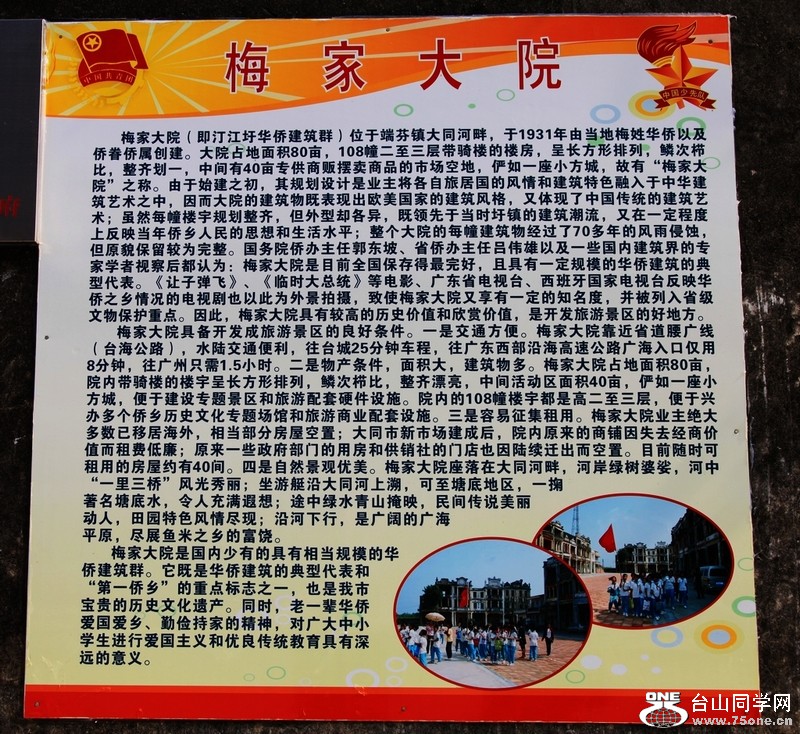 梅家大院
中国共青团
中国少先队
梅家大院（即汀江圩华侨建筑群）位于端芬镇大同河畔，于1931年由当地梅姓华侨以及
侨眷侨属创建。大院占地面积80亩，108幢二至三层带骑楼的楼房，呈长方形排列，鳞次栉
比，整齐划一，中间有40亩专供商贩摆卖商品的市场空地，俨如一座小方城，故有“梅家大
院”之称。由于始建之初，其规划设计是业主将各自旅居国的风情和建筑特色融入于中华建
筑艺术之中，因而大院的建筑物既表现出欧美国家的建筑风格，又体现了中国传统的建筑艺
术；虽然每幢楼宇规划整齐，但外型却各异，既领先于当时圩镇的建筑潮流，又在一定程度
上反映当年侨乡人民的思想和生活水平；整个大院的每幢建筑物经过了70多年的风雨侵蚀，
但原貌保留较为完整。国务院侨办主任郭东坡、省侨办主任吕伟雄以及一些国内建筑界的专
家学者视察后都认为：梅家大院是目前全国保存得最完好，且具有一定规模的华侨建筑的典
型代表。《让子弹飞》、《临时大总统》等电影、广东省电视台、西班牙国家电视台反映华
侨之乡情况的电视剧也以此为外景拍摄，致使梅家大院又享有一定的知名度，并被列入省级
文物保护重点。因此，梅家大院具有较高的历史价值和欣赏价值，是开发旅游景区的好地方。
梅家大院具备开发成旅游景区的良好条件。一是交通方便。梅家大院靠近省道腰广线
（台海公路），水陆交通便利，往台城25分钟车程，往广东西部沿海高速公路广海入口仅用
8分钟，往广州只需1.5小时。二是物产条件，面积大，建筑物多。梅家大院占地面积80亩，
院内带骑楼的楼宇呈长方形排列，鳞次栉比，整齐漂亮，中间活动区面积40亩，俨如一座小
方城，便于建设专题景区和旅游配套硬件设施。院内的108幢楼宇都是高二至三层，便于兴
办多个侨乡历史文化专题场馆和旅游商业配套设施。三是容易征集租用。梅家大院业主绝大
多数已移居海外，相当部分房屋空置；大同市新市场建成后，院内原来的商铺因失去经商价
值而租费低廉；原来一些政府部门的用房和供销社的门店也因陆续迁出而空置。目前随时可
租用的房屋约有40间。四是自然景观优美。梅家大院座落在大同河畔，河岸绿树婆娑，河中
“一里三桥”风光秀丽；坐游艇沿大同河上溯，可至塘底地区，一掬
著名塘底水，令人充满遐想；途中绿水青山掩映，民间传说美丽
动人，田园特色风情尽现；沿河下行，是广阔的广海
平原，尽展鱼米之乡的富饶。
梅家大院是国内少有的具有相当规模的华
侨建筑群。它既是华侨建筑的典型代表和
“第一侨乡”的重点标志之一，也是我市
宝贵的历史文化遗产。同时，老一辈华侨
爱国爱乡、勤俭持家的精神，对广大中小
学生进行爱国主义和优良传统教育具有深
远的意义。
府
ONE 台山同学网
www.75one.cn